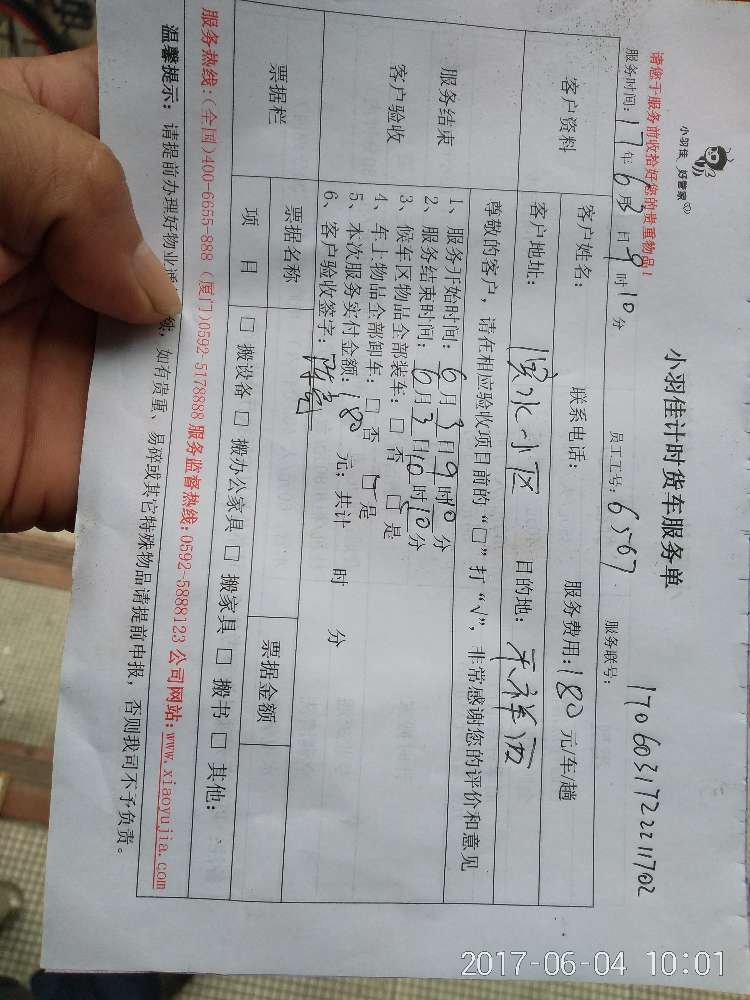 请您于服务前收拾好您的贵重物品!
小羽佳 好管家
小羽佳计时货车服务单
服务时间:17年6月3日9时10分 员工工号:6567 服务联号:1706031722211702
客户资料
客户姓名: 联系电话: 服务费用:180元/车/趟
客户地址:滨水小区 目的地:禾祥西
服务结束
客户验收
尊敬的客户,请在相应验收项目前的“□”打“√”,非常感谢您的评价和意见
1、服务开始时间:6月3日9时10分
2、服务结束时间:6月3日10时10分
3、候车区物品全部装车:□否 □是
4、车上物品全部卸车:□否 □是
5、本次服务实付金额:180元;共计 时 分
6、客户验收签字:
票据栏
票据名称 票据金额
项目 □搬设备 □搬办公家具 □搬家具 □搬书 □其他:
服务热线:(全国)400-6655-888 (厦门)0592-5178888 服务监督热线:0592-5888123 公司网站:www.xiaoyujia.com
温馨提示:请提前办理好物业 如有贵重、易碎或其它特殊物品请提前申报,否则我司不予负责。
2017-06-04 10:01